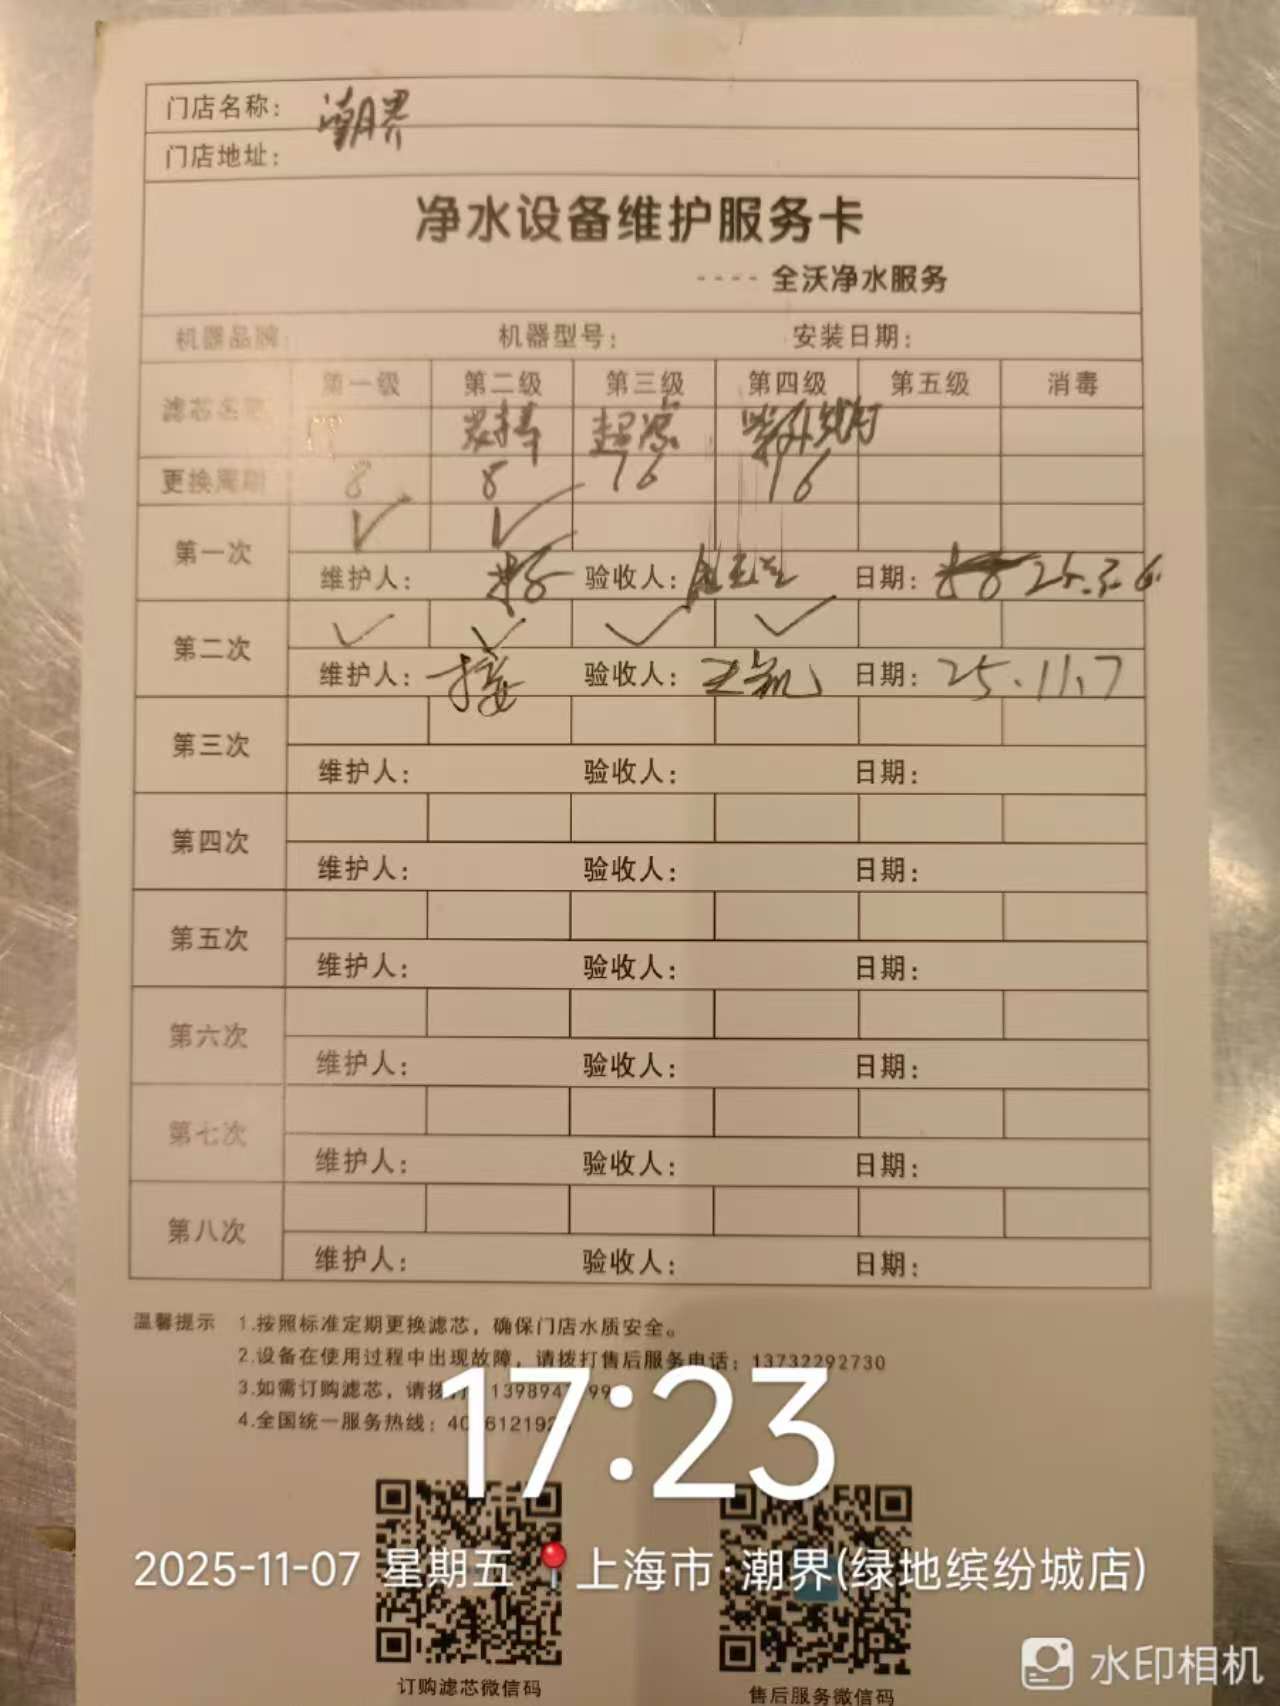 门店名称： 潮界
门店地址：
净水设备维护服务卡
---- 全沃净水服务
机器品牌： 机器型号： 安装日期：
滤芯名称 第一级 第二级 第三级 第四级 第五级 消毒
PP 炭棒 超滤 紫外线灯
更换周期 8 8 16 16
第一次 ✓ ✓
维护人： 验收人： 日期： 25.3.6.
第二次 ✓ ✓ ✓ ✓
维护人： 验收人： 王凯 日期： 25.11.7
第三次
维护人： 验收人： 日期：
第四次
维护人： 验收人： 日期：
第五次
维护人： 验收人： 日期：
第六次
维护人： 验收人： 日期：
第七次
维护人： 验收人： 日期：
第八次
维护人： 验收人： 日期：
温馨提示 1.按照标准定期更换滤芯，确保门店水质安全。
2.设备在使用过程中出现故障，请拨打售后服务电话：13732292730
3.如需订购滤芯，请拨打
4.全国统一服务热线：
17:23
2025-11-07 星期五 📍上海市·潮界(绿地缤纷城店)
订购滤芯微信码 售后服务微信码
水印相机